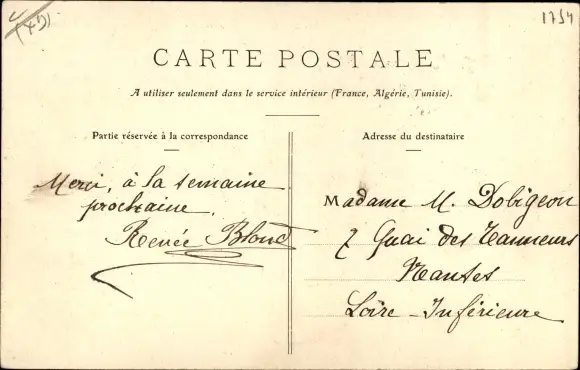 1754
CARTE POSTALE
A utiliser seulement dans le service intérieur (France, Algérie, Tunisie).
Partie réservée à la correspondance
Merci, à la semaine
prochaine.
Renée Blond
Adresse du destinataire
Madame M. Dobigeon
7 Quai des Tanneurs
Nantes
Loire-Inférieure